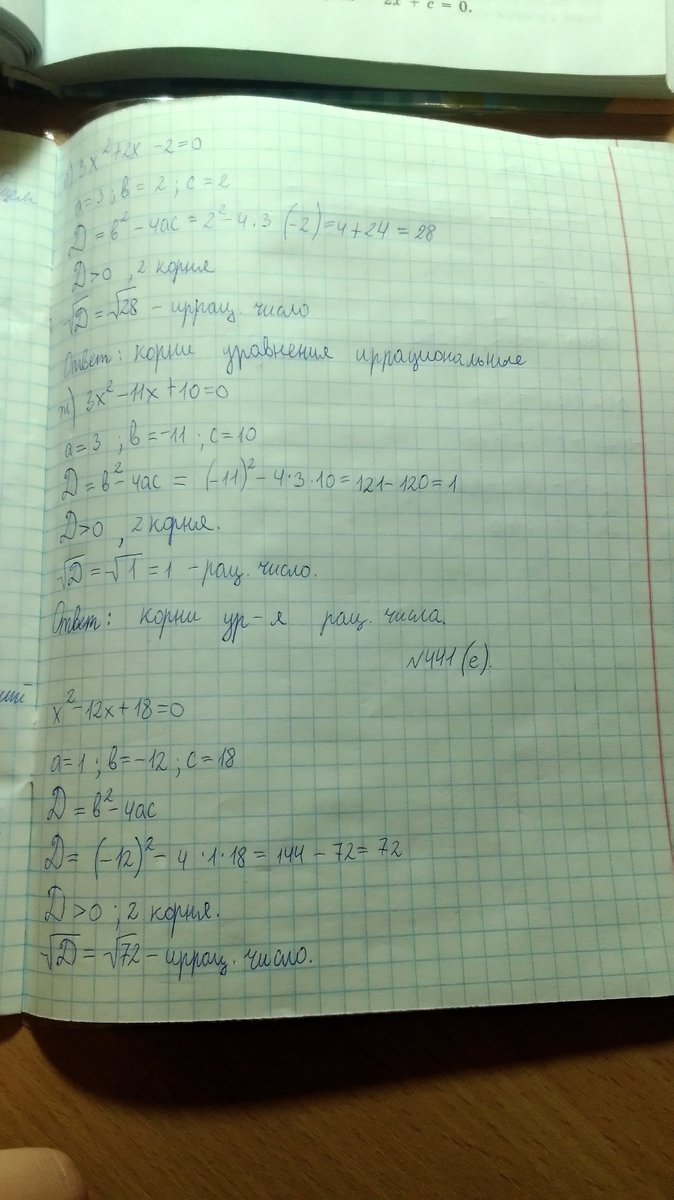 2x + c = 0.
) 3x² + 2x - 2 = 0
a = 3 ; в = 2 ; c = 2
Д = в² - 4ac = 2² - 4 · 3 (-2) = 4 + 24 = 28
Д > 0 , 2 корня
√Д = √28 - иррац. число
Ответ: корни уравнения иррациональные
ж) 3x² - 11x + 10 = 0
a = 3 ; в = -11 ; c = 10
Д = в² - 4ac = (-11)² - 4 · 3 · 10 = 121 - 120 = 1
Д > 0 , 2 корня.
√Д = √1 = 1 - рац. число.
Ответ: корни ур-я рац. числа.
№441 (е).
x² - 12x + 18 = 0
a = 1 ; в = -12 ; c = 18
Д = в² - 4ac
Д = (-12)² - 4 · 1 · 18 = 144 - 72 = 72
Д > 0 ; 2 корня.
√Д = √72 - иррац. число.